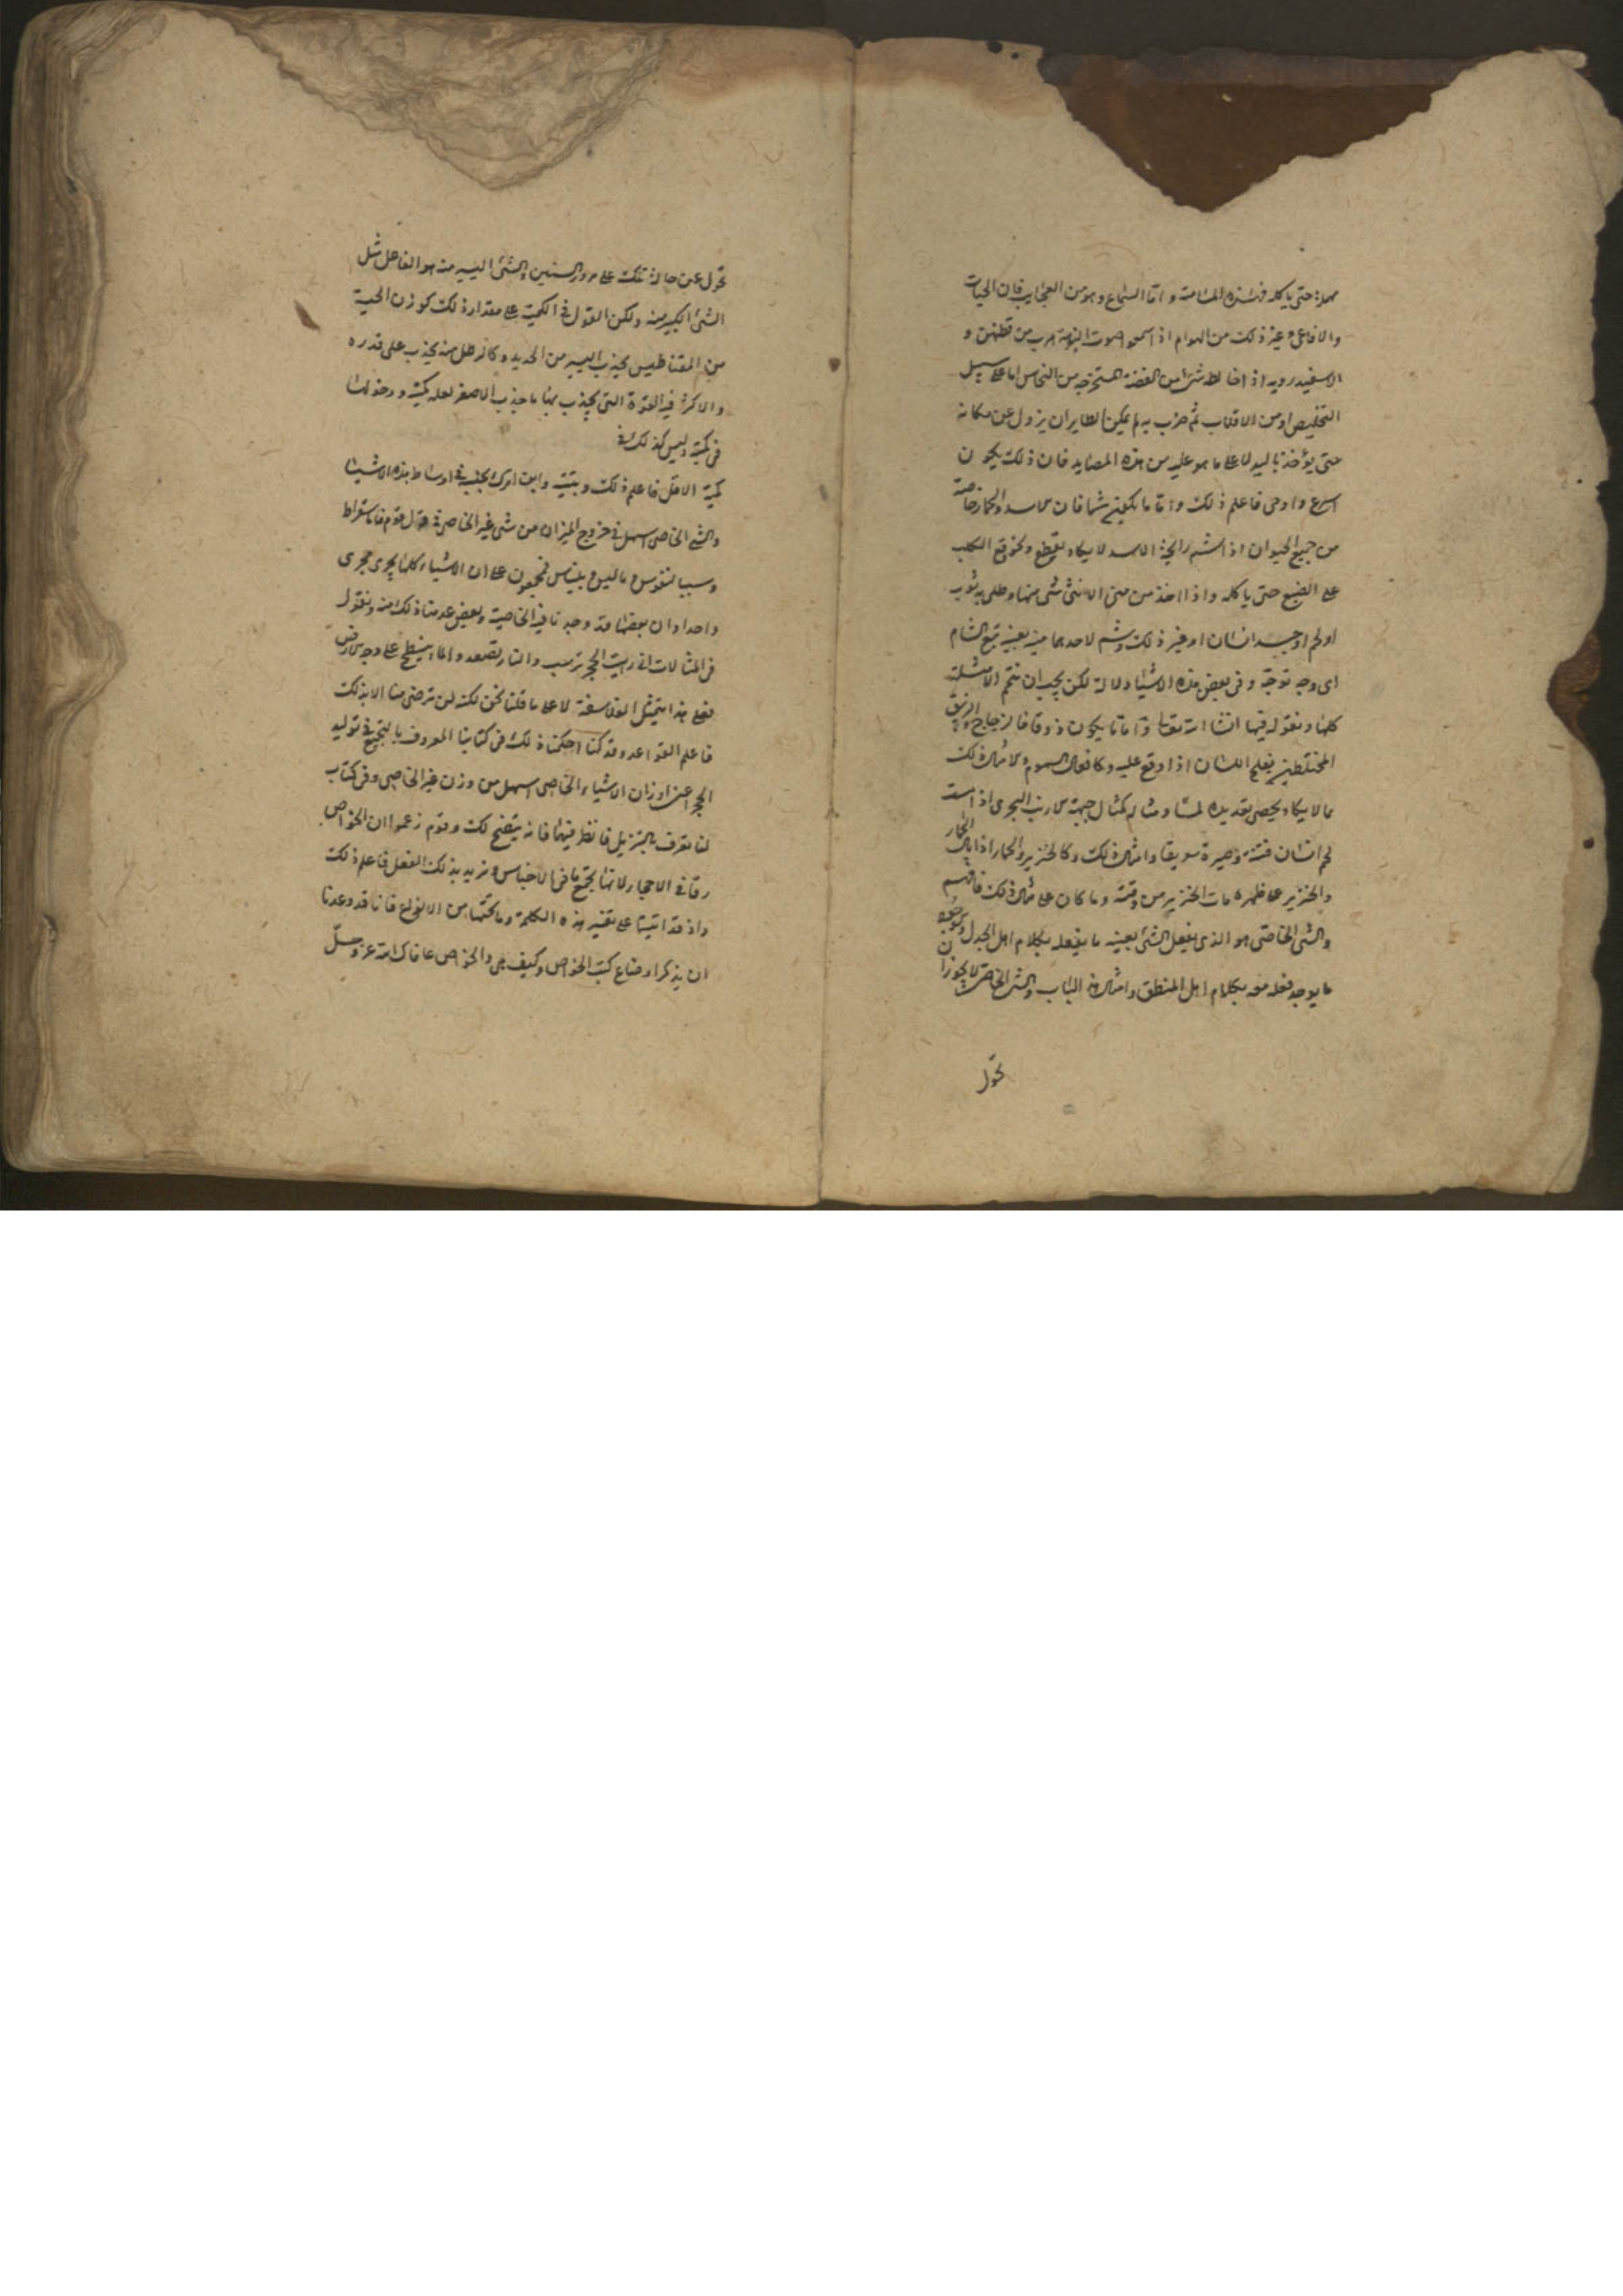 حتى ياكله فهذه الملامسة واما السماع وهو من العجايب فان الحيات
والافاعى وغير ذلك من الهوام اذا سمعوا صوت هرب من و
الاسفيدرويه اذا خالطه شئ من الفضة المستخرجه من النحاس اما على سبيل
التخليص او من الاقلاب ثم ضرب به لم يمكن الطاير ان يزول عن مكانه
حتى يؤخذ باليد لما على ما هو عليه من هذه المصايد فان ذلك يكون
اسرع واوحى فاعلم ذلك واما ما يكون شما فان الاسد والحمار خاصة
من جميع الحيوان اذا اشتم رايحة الاسد لا يكاد يقطع وكوقع الكلب
على الضبع حتى ياكله واذا اخذ من منى الانثى شئ منها وطلى به ثوب
او لحم او جسد انسان او غير ذلك وشم لاحدهما منه بعينه تبع الشام
اى وجه توجه وفى بعض هذه الاشياء دلالة لكن يجب ان نتم الامثلة
كلها ونقول فيها انشا الله تعالى واما ما يكون ذوقا فالزجاج والزيبق
المختلطين يفلج اللسان اذا وقع عليه وكافعال السموم وامثال ذلك
مما لا يكاد يحصى تعديده لمسا ومثاله كمثال جبهة الارنب البحرى اذا مست
لحم انسان فتته وصيره سويقا وامثال ذلك وكالخنزير والحمار اذا بال الحمار
والخنزير على ظهره مات الخنزير من وقته وما كان على مثال ذلك فافهم
والشئ الخاصى هو الذى يفعل الشئ بعينه ما يفعله بكلام اهل الجدل وكونه
ما يوجد فعله معه بكلام اهل المنطق وامثال هذا الباب والشئ الخاص لا يجوز ان
تحول
تحول عن حالة تلك على مرور السنين والشئ اليسير منه هو الفاعل مثل
الشئ الكبير منه ولكن القول فى الكمية على مقدار ذلك كوزن الحبة
من المقناطيس يجذب اليسير من الحديد وكالرطل منه يجذب على قدره
والاكثر فيه القوة التى يجذب بها ما جذب الاصغر لعله كميته ودخولها
فى كمية وليس كذلك فى
كمية الاقل فاعلم ذلك وبينه وابن امرك بحسبه فى اوساط هذه الاشياء
والشئ الخاصى اسهل فى خروج الميزان من شئ غير الخاصى فى قول قوم فاما سقراط
وسنبليقوس وماليس وبليناس فيجمعون على ان الاشياء كلها يجرى مجرى
واحدا وان بعضها قد وجدنا فيه الخاصية وبعض عدمنا ذلك منه ونقول
فى المثالات انى رايت الحجر ترسب والنار تصعد والماء ينسطح على وجه الارض
فعلى هذا يتمثل الفلاسفة لا على ما قلنا نحن لكنه لن ترضى منا الا بذلك
فاعلم القواعد وقد كنا احكمنا ذلك فى كتابنا المعروف بالتجميع فى توليد
الحجر اعنى اوزان الاشياء الخاصى اسهل من وزن غير الخاصى وفى كتاب
لنا تعرف بالتنزيل فانظر فيهما فانه يتضح لك وقوم زعموا ان الخواص
رقا فى الاحجار لانها تجتمع ما فى الاجناس ونريد بذلك الفعل فاعلم ذلك
واذ قد اتينا على تفسير هذه الكلمة وما تحتها من الانواع فانا قد وعدنا
ان نذكر اوضاع كتب الخواص وكيف هى والخواص عافاك الله عز وجل